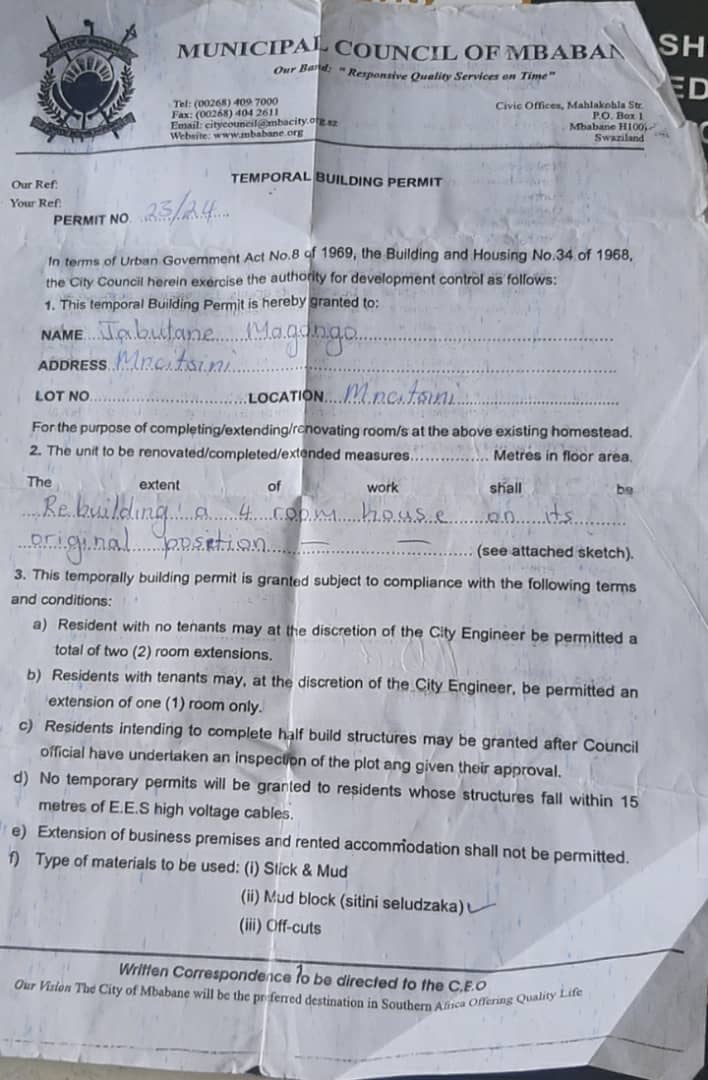 MUNICIPAL COUNCIL OF MBABAN
Our Band; "Responsive Quality Services on Time"
Tel: (00268) 409 7000
Fax: (00268) 404 2611
Email: citycouncil@mbacity.org.sz
Website: www.mbabane.org
Civic Offices, Mahlakohla Str.
P.O. Box 1
Mbabane H100
Swaziland
SH
ED
Our Ref:
Your Ref:
TEMPORAL BUILDING PERMIT
PERMIT NO. 23/24
In terms of Urban Government Act No.8 of 1969, the Building and Housing No.34 of 1968,
the City Council herein exercise the authority for development control as follows:
1. This temporal Building Permit is hereby granted to:
NAME Jabutane Magongo
ADDRESS Mncitsini
LOT NO. LOCATION Mncitsini
For the purpose of completing/extending/renovating room/s at the above existing homestead.
2. The unit to be renovated/completed/extended measures............... Metres in floor area.
The extent of work shall be
Rebuilding a 4 room house on its
original position (see attached sketch).
3. This temporally building permit is granted subject to compliance with the following terms
and conditions:
a) Resident with no tenants may at the discretion of the City Engineer be permitted a
total of two (2) room extensions.
b) Residents with tenants may, at the discretion of the City Engineer, be permitted an
extension of one (1) room only.
c) Residents intending to complete half build structures may be granted after Council
official have undertaken an inspection of the plot ang given their approval.
d) No temporary permits will be granted to residents whose structures fall within 15
metres of E.E.S high voltage cables.
e) Extension of business premises and rented accommodation shall not be permitted.
f) Type of materials to be used: (i) Stick & Mud
(ii) Mud block (sitini seludzaka) ✓
(iii) Off-cuts
Written Correspondence to be directed to the C.E.O
Our Vision The City of Mbabane will be the preferred destination in Southern Africa Offering Quality Life